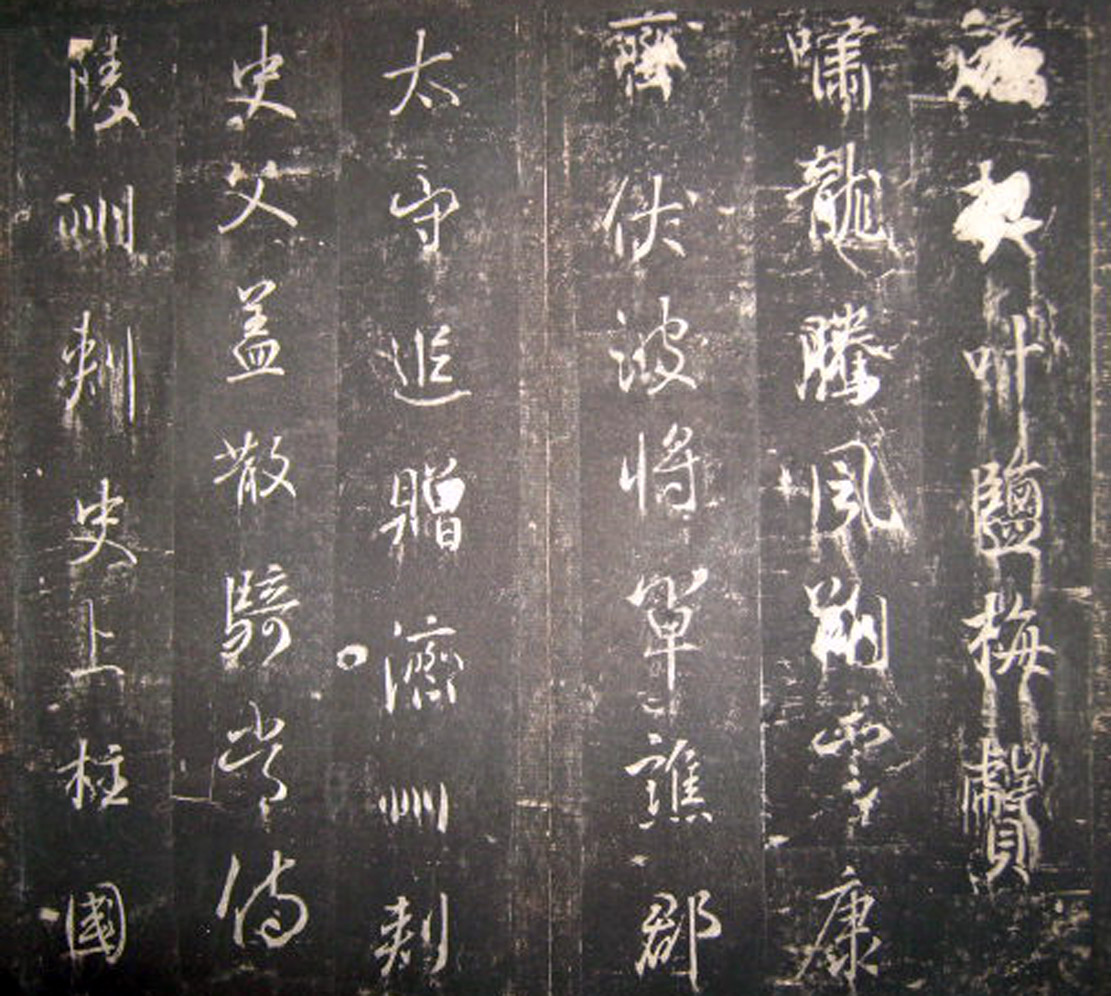 契叶鹽梅贙
嘯龍騰風康
齊伏波將軍譙郡
太守追贈濟州刺
史父盖散騎常侍
陵州刺史上柱國